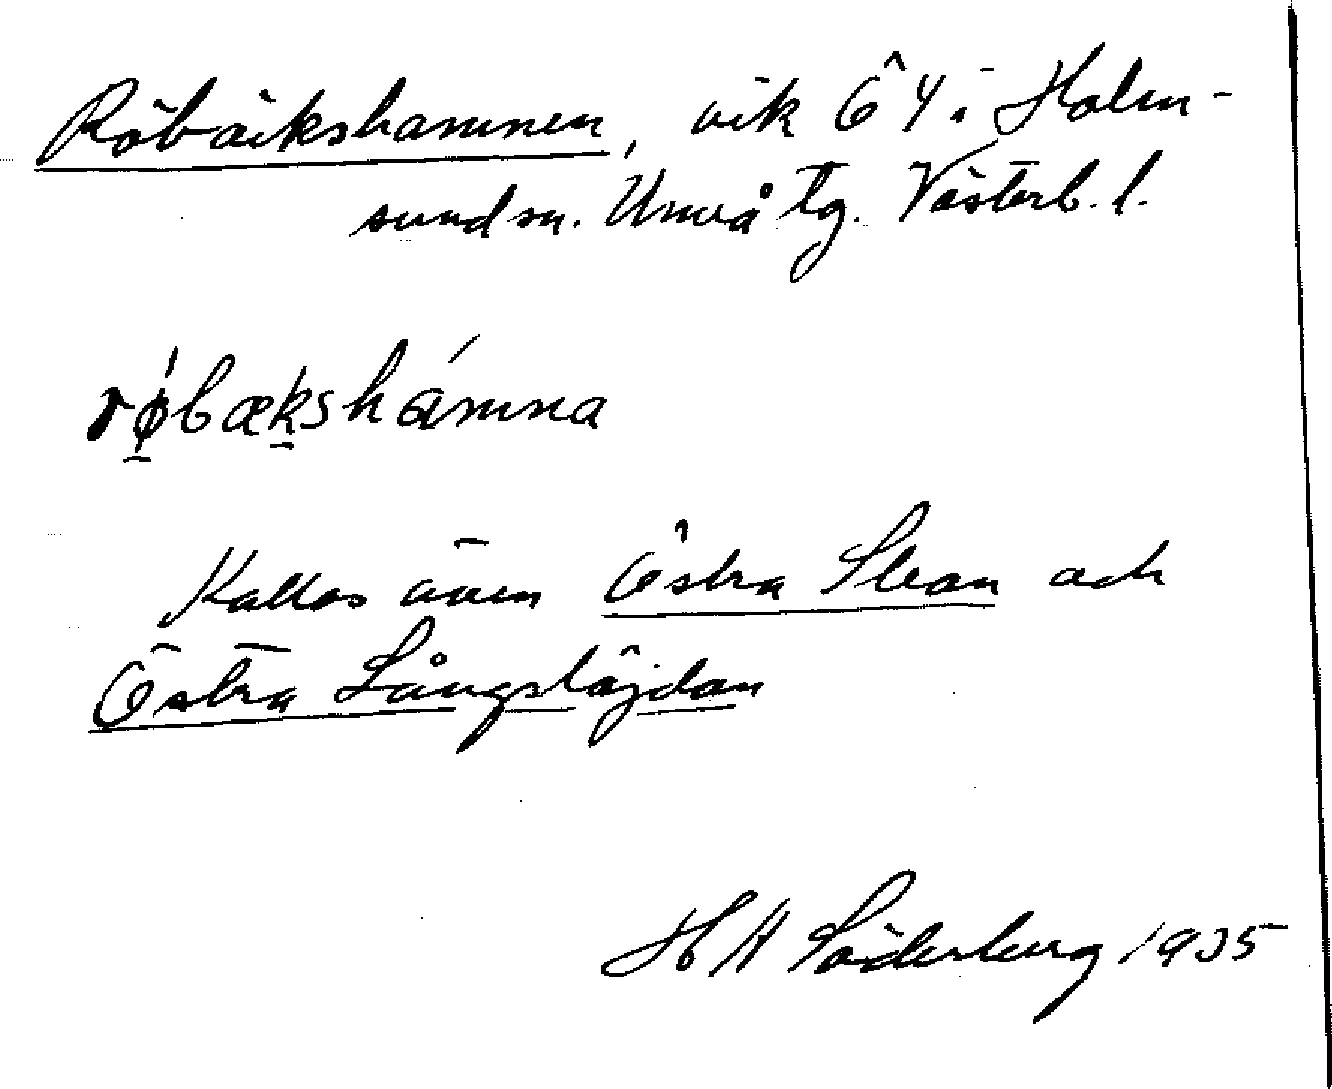 Röbäckshamnen, vik Ö 4 i Holm-
sunds sn. Umeå tg. Västerb. l.
røbækshamna
Kallas även Östra Slean och
Östra Långslöjdan
H A Söderberg 1935